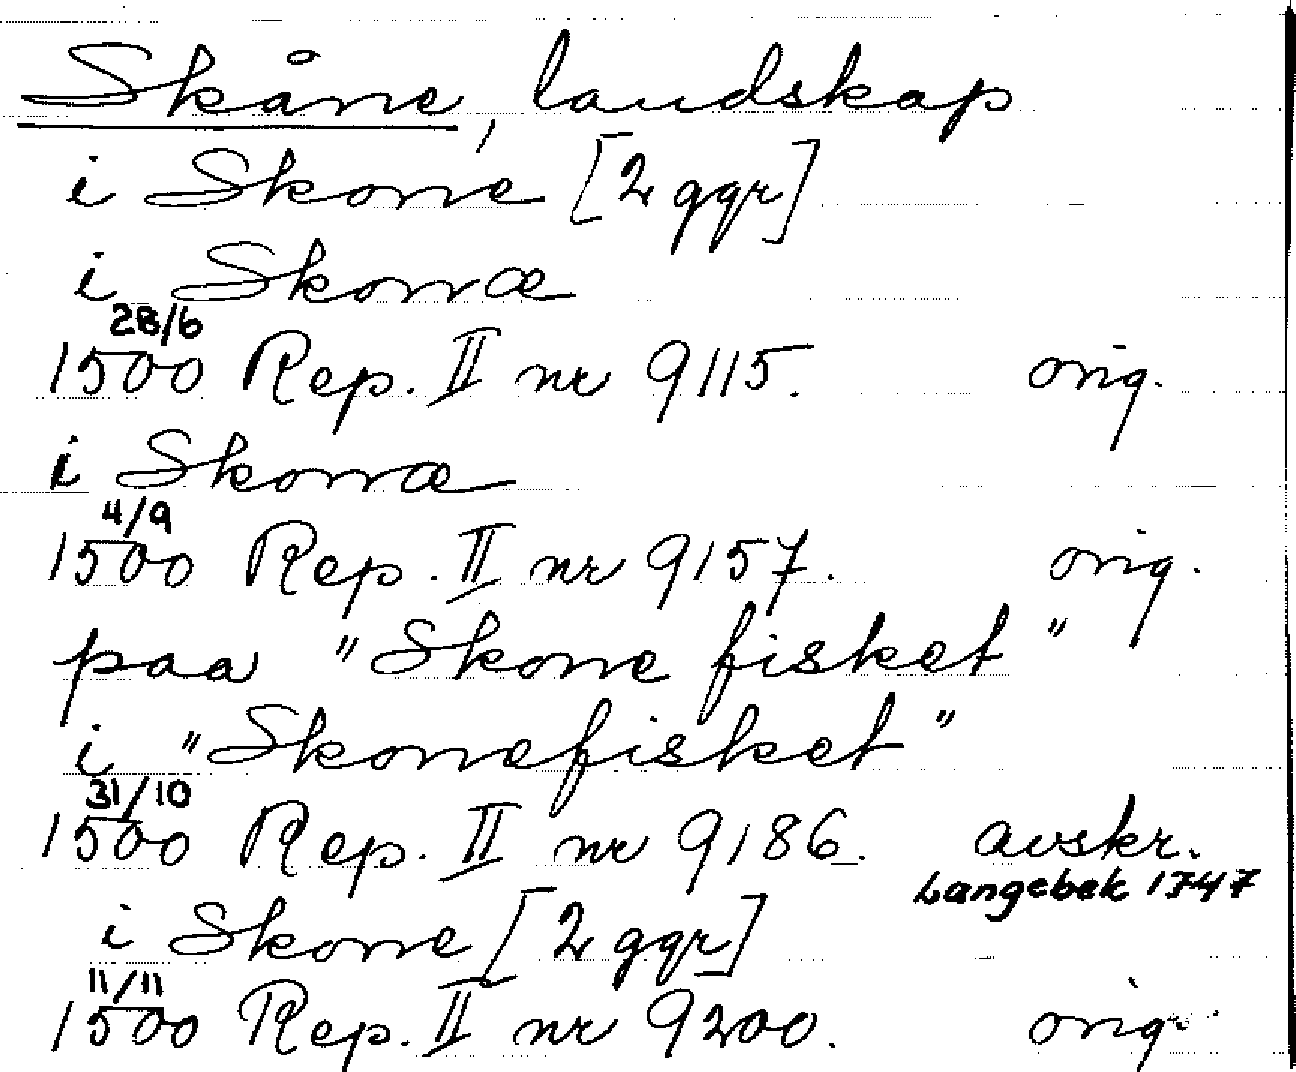 Skåne, landskap
i Skone [2 ggr]
i Skonæ
28/6
1500 Rep. II nr 9115. orig.
i Skonæ
4/9
1500 Rep. II nr 9157. orig.
paa "Skone fisket"
i "Skonefisket"
31/10
1500 Rep. II nr 9186. avskr.
Langebek 1747
i Skone [2 ggr]
11/11
1500 Rep. II nr 9200. orig.